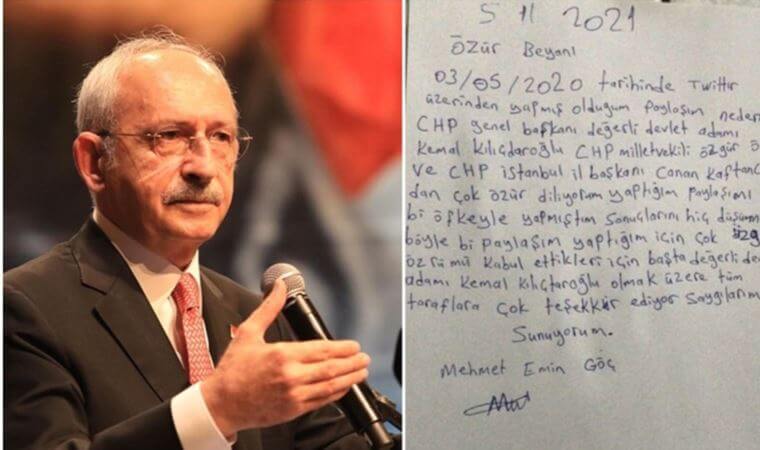 5 11 2021
özür Beyanı
03/05/2020 tarihinde Twitter
üzerinden yapmış olduğum paylaşım neden
CHP genel başkanı değerli devlet adamı
Kemal Kılıçdaroğlu CHP milletvekili özgür ö
ve CHP istanbul il başkanı Canan Kaftanc
dan çok özür diliyorum yaptığım paylaşımı
bi öfkeyle yapmıştım sonuçlarını hiç düşünm
böyle bi paylaşım yaptığım için çok üzg
özrümü kabul ettikleri için başta değerli de
adamı Kemal Kılıçtaroğlu olmak üzere tüm
taraflara çok teşekkür ediyor saygılarım
Sunuyorum.
Mehmet Emin Göç